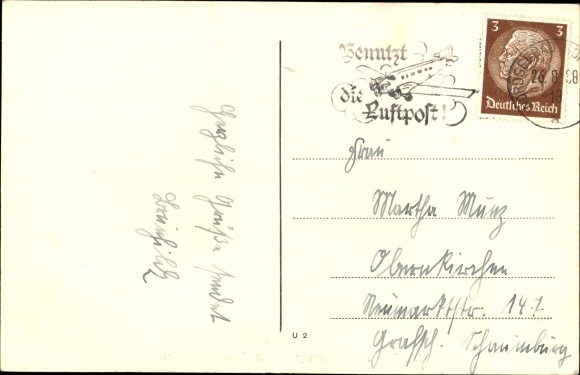 Benutzt
die
Luftpost!
3 3
Deutsches Reich
Herzliche Grüße sendet
Frau
Martha Münz
Obernkirchen
Neumarktstr. 147
Grafsch. Schaumburg
U 2